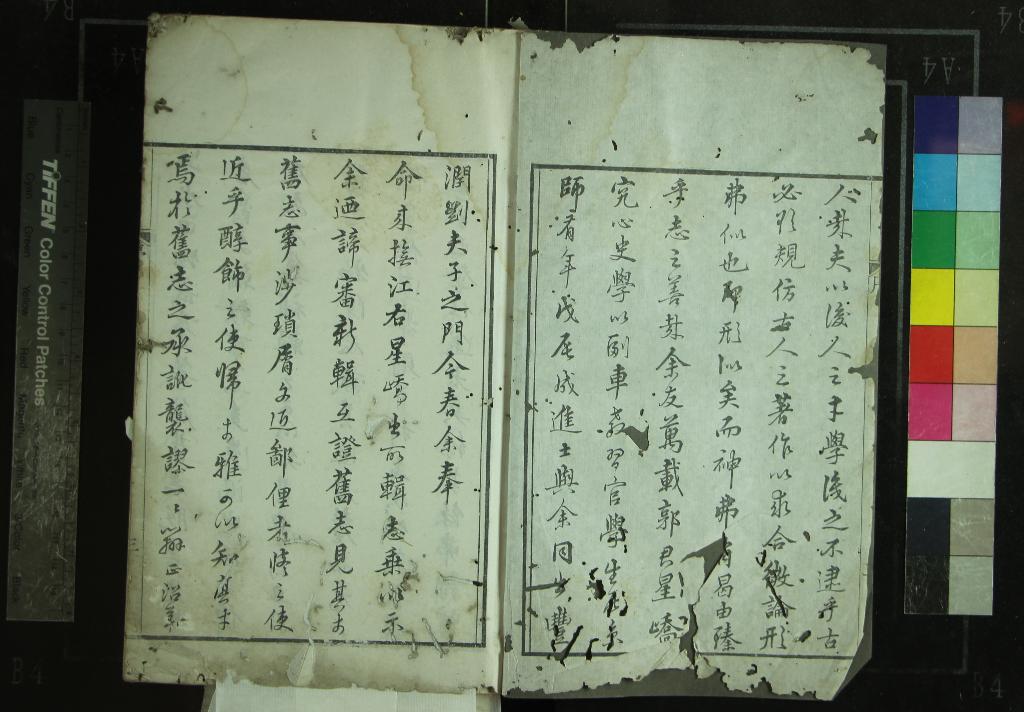 人哉夫以後人之才學後之不逮乎古
必形規仿古人之著作以求合微論形
弗似也即形似矣而神弗肖曷由臻
乘志之善哉余友萬載郭君星嶠
究心史學以副車教習官學生
師肴年戊辰成進士與余同出豐
潤劉夫子之門今春余奉
命來撫江右星嶠出所輯志乘眎示
余迺諦審新輯互證舊志見其才
舊志事涉瑣屑文近鄙俚者修之使
近乎醇飾之使歸乎雅可以知其才
焉於舊志之承訛襲謬一一辨正沿
B4
A4
TIFFEN Color Control Patches
Blue
Cyan
Green
Yellow
Red
Magenta
White
Black